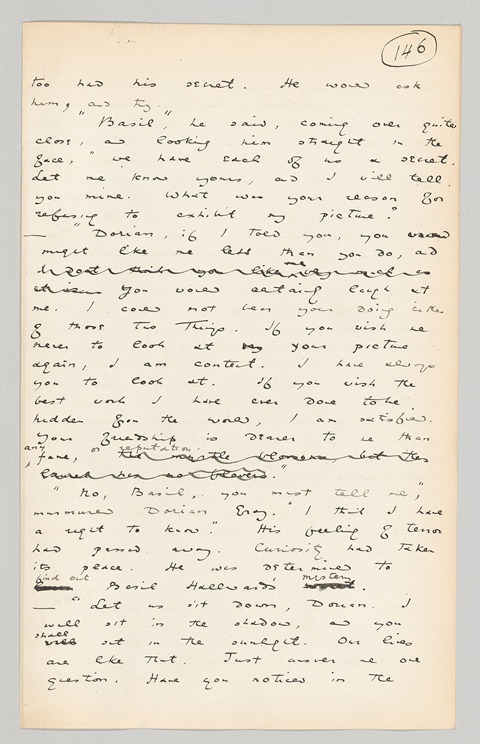 146
too had his secret. He would ask
him, and try.
"Basil", he said, coming over quite
close, and looking him straight in the
face, "we have each of us a secret.
Let me know yours, and I will tell
you mine. What was your reason for
refusing to exhibit my picture?"
— "Dorian, if I told you, you would
might like me less than you do, and
I don't think you like me very much as
it is. You would certainly laugh at
me. I could not bear your doing either
of those two things. If you wish me
never to look at my your picture
again, I am content. I have always
you to look at. If you wish the
best work I have ever done to be
hidden from the world, I am satisfied.
Your friendship is dearer to me than
any fame, or reputation.
"No, Basil, you must tell me",
murmured Dorian Gray. "I think I have
a right to know." His feeling of terror
had passed away. Curiosity had taken
its place. He was determined to
find out Basil Hallward's mystery.
— "Let us sit down, Dorian. I
will sit in the shadow, and you
shall will sit in the sunlight. Our lives
are like that. Just answer me one
question. Have you noticed in the